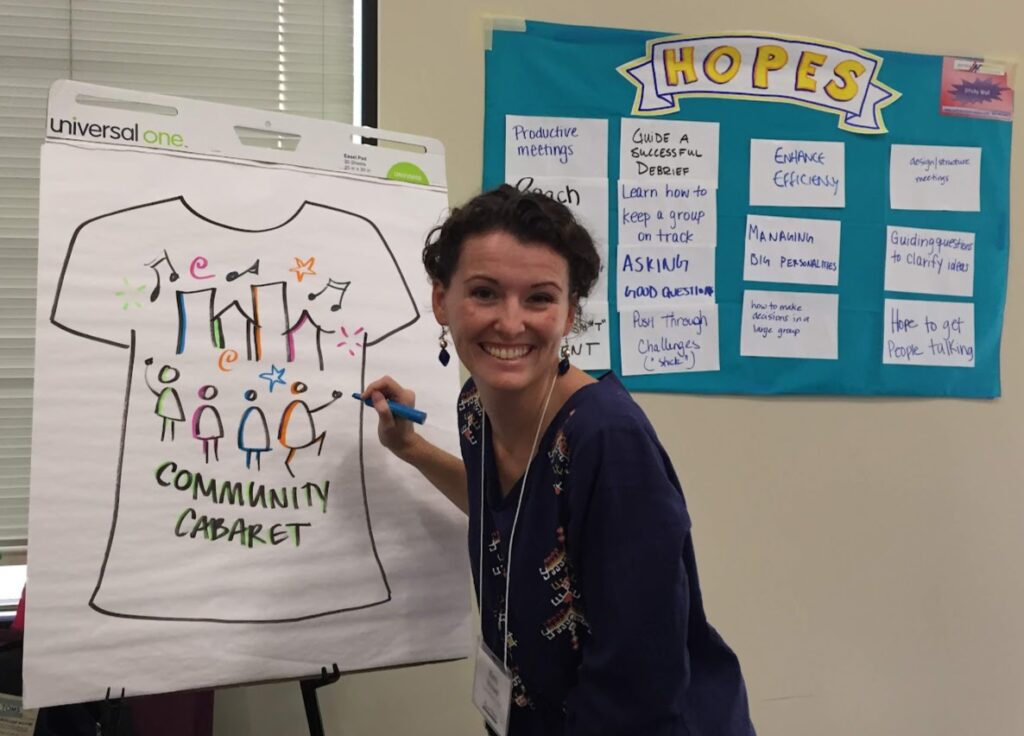 universal one
Easel Pad
COMMUNITY
CABARET
HOPES
Sticky Wall
Productive
meetings
Reach
"T"
ENT
GUIDE A
SUCCESSFUL
DEBRIEF
Learn how to
keep a group
on track
ASKING
GOOD QUESTIONS
Push Through
Challenges
("stick")
ENHANCE
EFFICIENCY
MANAGING
BIG PERSONALITIES
how to make
decisions in a
large group
design/structure
meetings
Guiding questions
to clarify ideas
Hope to get
People talking